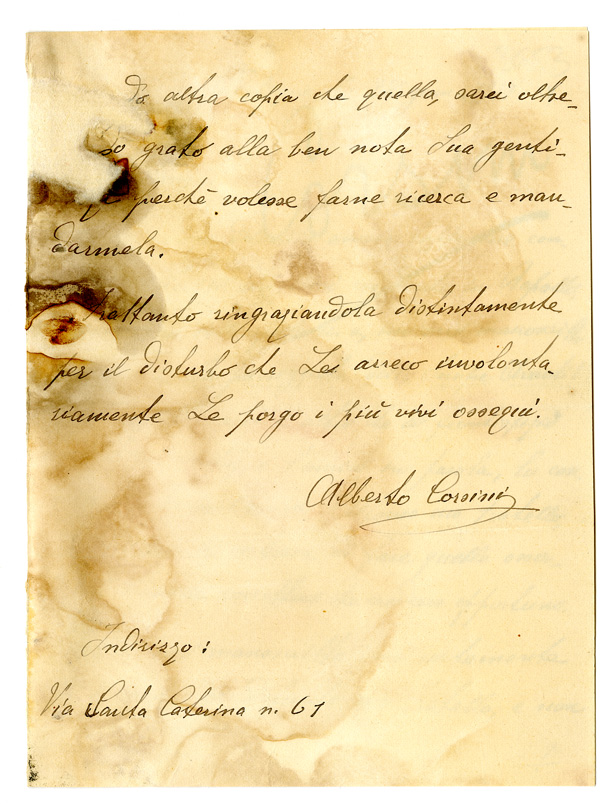 altra copia che quella, sarei oltre-
grato alla ben nota Sua genti-
perchè volesse farne ricerca e man-
darmela.
Frattanto ringraziandola distintamente
per il disturbo che Lei arreco involonta-
riamente Le porgo i più vivi ossequi.
Alberto Corsini
Indirizzo:
Via Santa Caterina n. 61